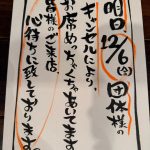 明日12/6(金)団体様の
キャンセルにより、
お席めっちゃくちゃあいてます
皆様のご来店
心待ちに致しております。